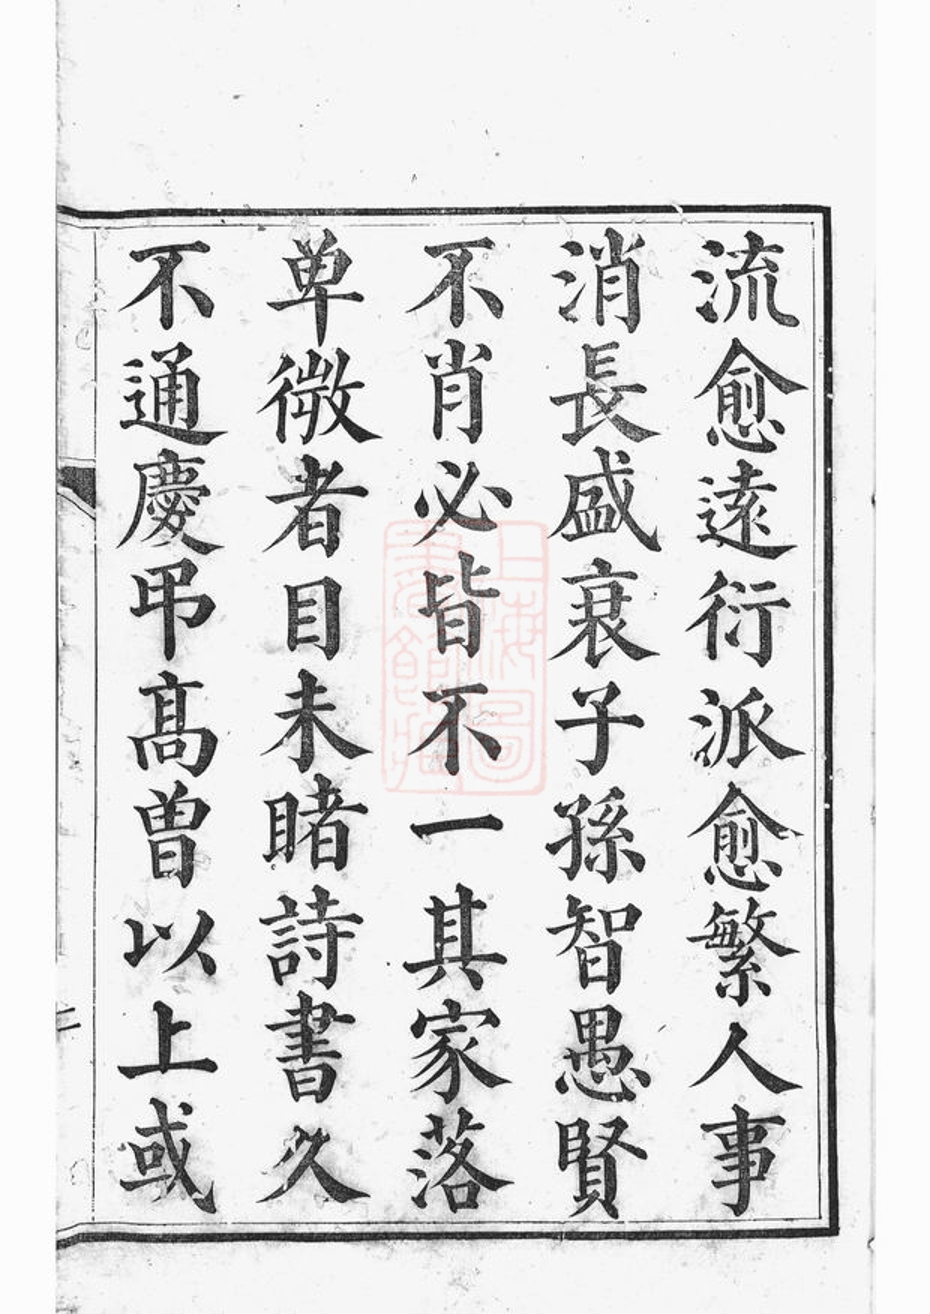 流愈遠衍派愈繁人事
消長盛衰子孫智愚賢
不肖必皆不一其家落
单微者目未睹詩書久
不通慶弔髙曽以上或
二
上海圖
書館藏